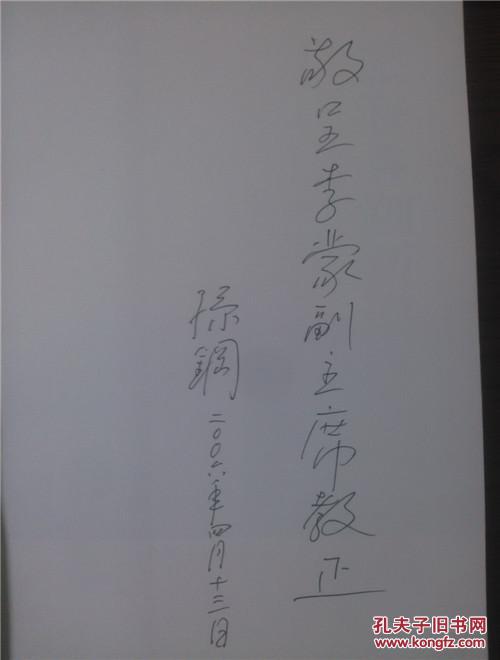 敬呈李蒙副主席教正
孙钢
二〇〇六年四月十三日
孔夫子旧书网
www.kongfz.com